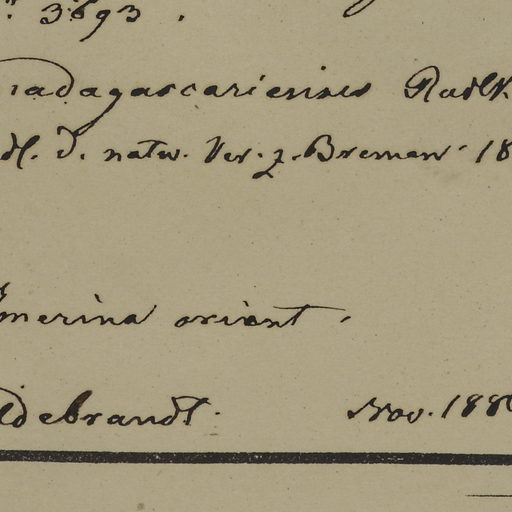 3693.
madagascariensis Radlk
dl. d. natw. Ver. z. Bremen 18
Imerina orient.
ldebrandt. Nov. 188